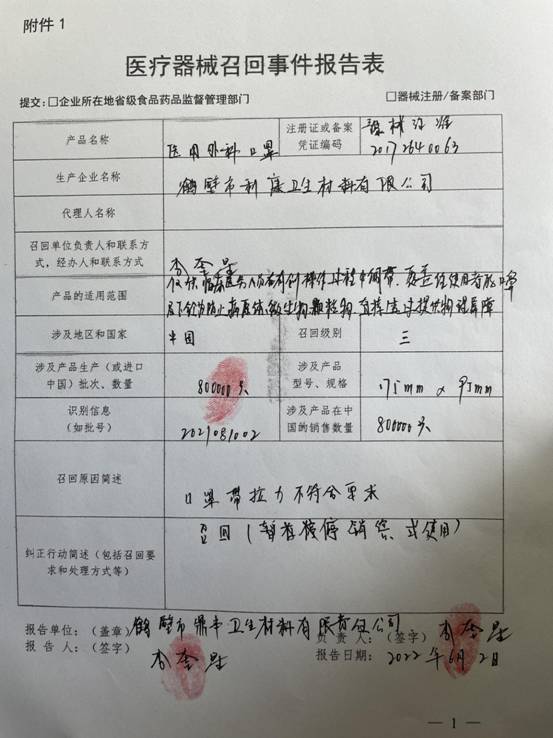 附件 1
医疗器械召回事件报告表
提交：□企业所在地省级食品药品监督管理部门 □器械注册/备案部门
产品名称 医用外科口罩 注册证或备案凭证编码 2017264 0063
生产企业名称 鹤壁市 卫生材料有限公司
代理人名称
召回单位负责人和联系方式，经办人和联系方式 李奎星
产品的适用范围 仅供临床医务人员在有创操作过程中佩带，覆盖住使用者的口鼻
及下颌为防止病原体微生物颗粒物直接透过提供物理屏障
涉及地区和国家 中国 召回级别 三
涉及产品生产（或进口中国）批次、数量 800000只 涉及产品型号、规格 175mm x 95mm
识别信息（如批号） 2021081002 涉及产品在中国的销售数量 800000只
召回原因简述 口罩带拉力不符合要求
纠正行动简述（包括召回要求和处理方式等） 召回（暂停 销售 式使用）
报告单位：（盖章）鹤壁市鼎丰卫生材料有限责任公司 负责人：（签字）李奎星
报告人：（签字）李奎星 报告日期：2022年6月2日
— 1 —